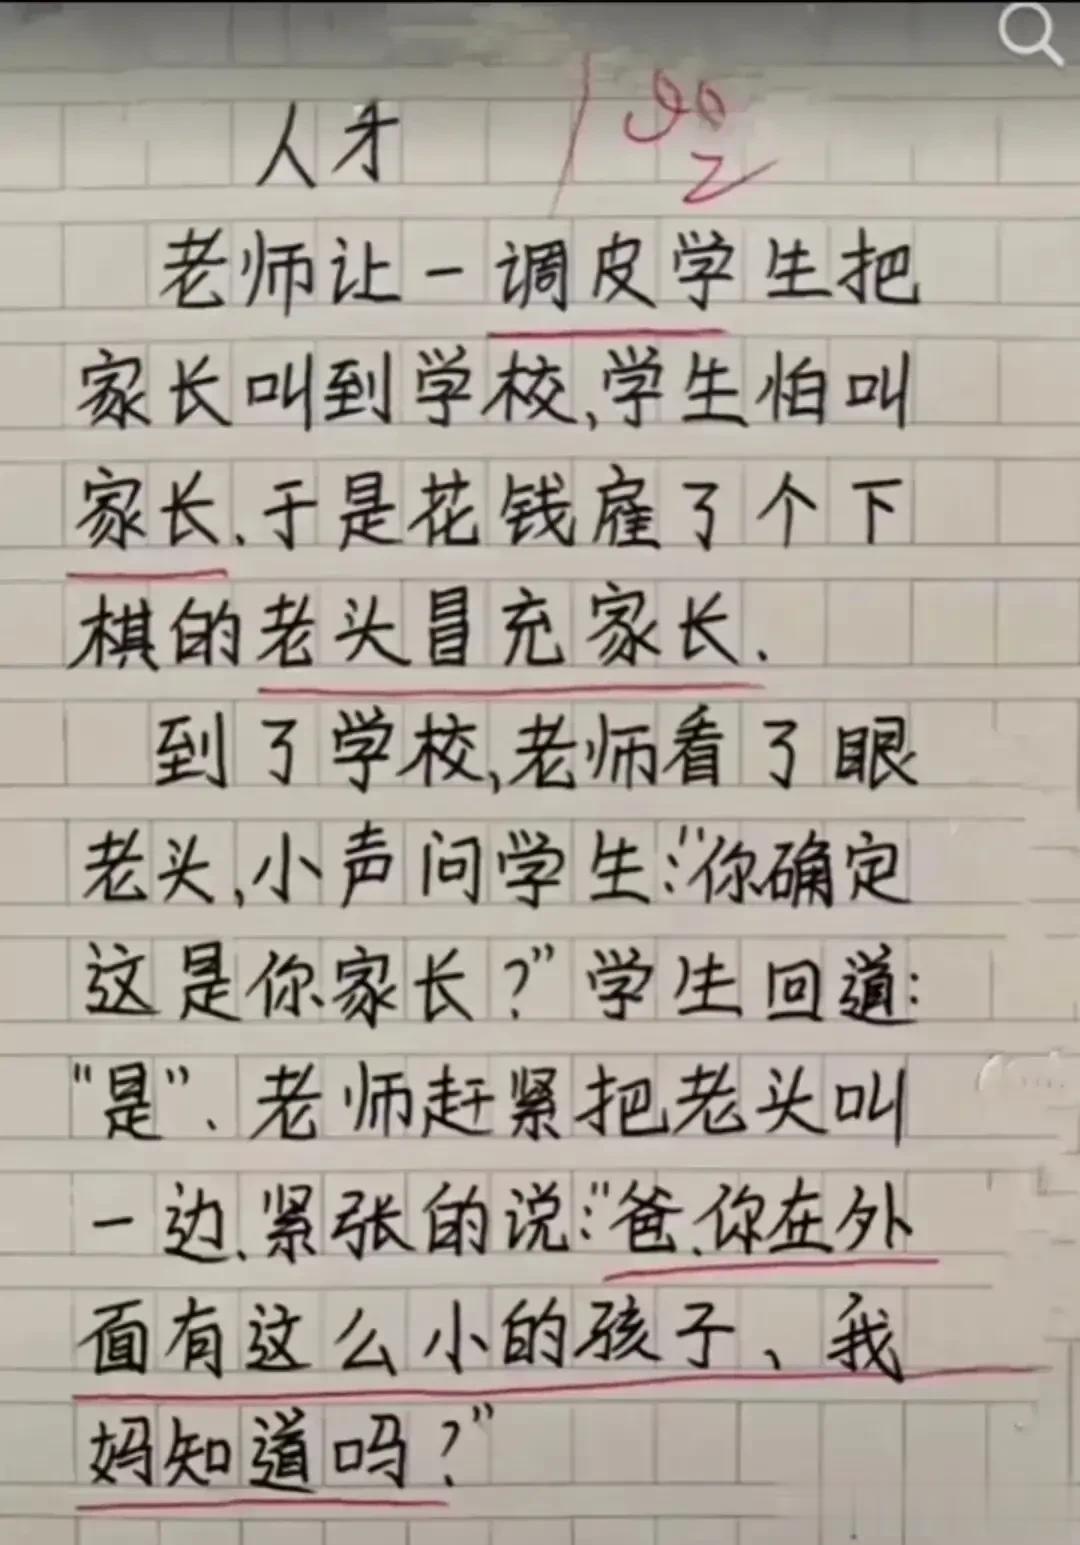 人才
老师让一调皮学生把
家长叫到学校,学生怕叫
家长、于是花钱雇了个下
棋的老头冒充家长.
到了学校,老师看了眼
老头,小声问学生:"你确定
这是你家长?"学生回道:
"是"、老师赶紧把老头叫
一边、紧张的说:"爸、你在外
面有这么小的孩子、我
妈知道吗?"